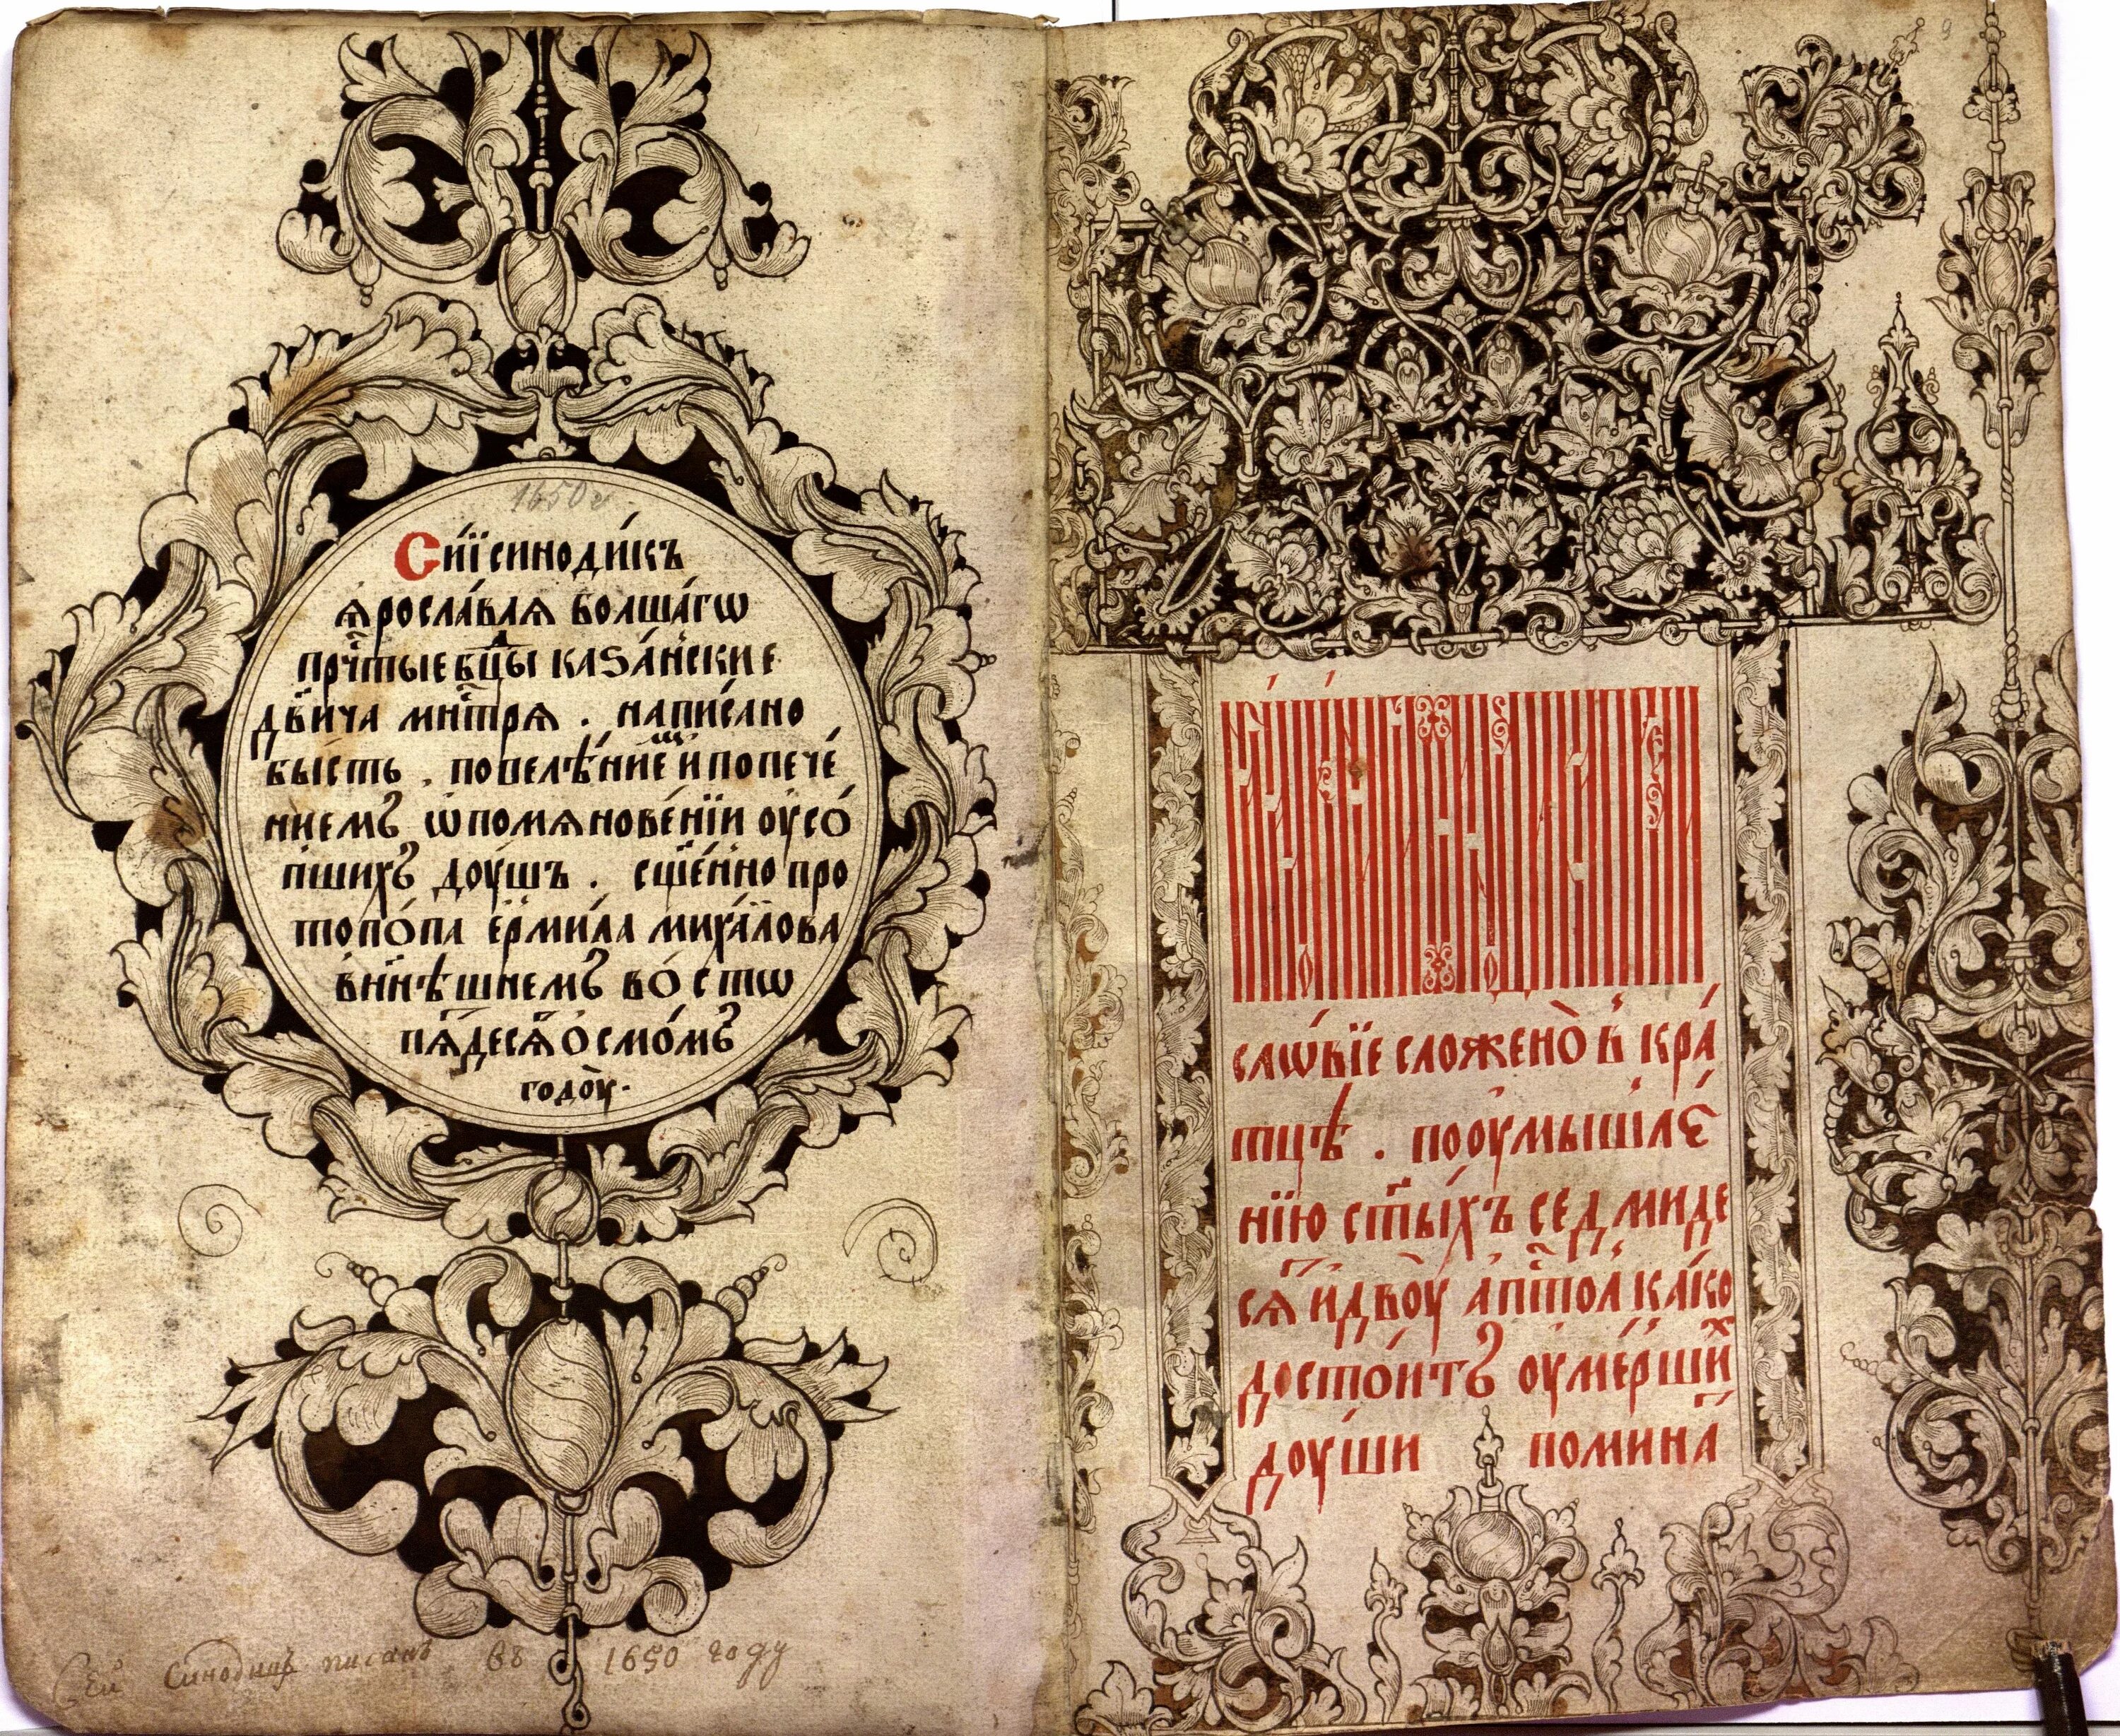 1650 г
Сі́й синоди́къ
ꙗросла́влѧ болша́гѡ
прⷱ҇тые бцⷣы каза́нские
дв҃ича мнⷭ҇трѧ . напи́сано
бы́сть . повелѣ́ниемъ и попече́
ниемъ ѡ помѧнове́нїи оусо́
пшихъ доу́шъ . сщ҃е́нно про
топо́па ерми́ла миха́илова
в нн҃ѣшнемъ во́ стѡ
пѧдесѧ́ осмо́мъ
годоу̀ .
сло́вїе сложено̀ в кра́
тцѣ . по оумышле́
нїю ст҃ы́хъ седмиде
сѧ́ и двоу̀ апⷭ҇то́л ка́ко
досто́итъ оуме́рши̑х
доу́ши помина́
Сей Синодикъ писанъ въ 1650 году